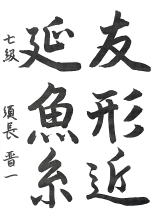 友形近
延魚糸
七級 須長晋一